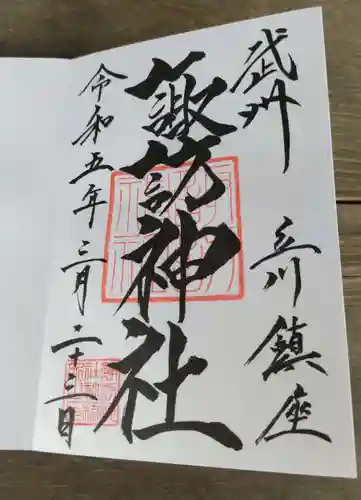 武州 立川鎮座
諏訪神社
令和五年三月二十三日